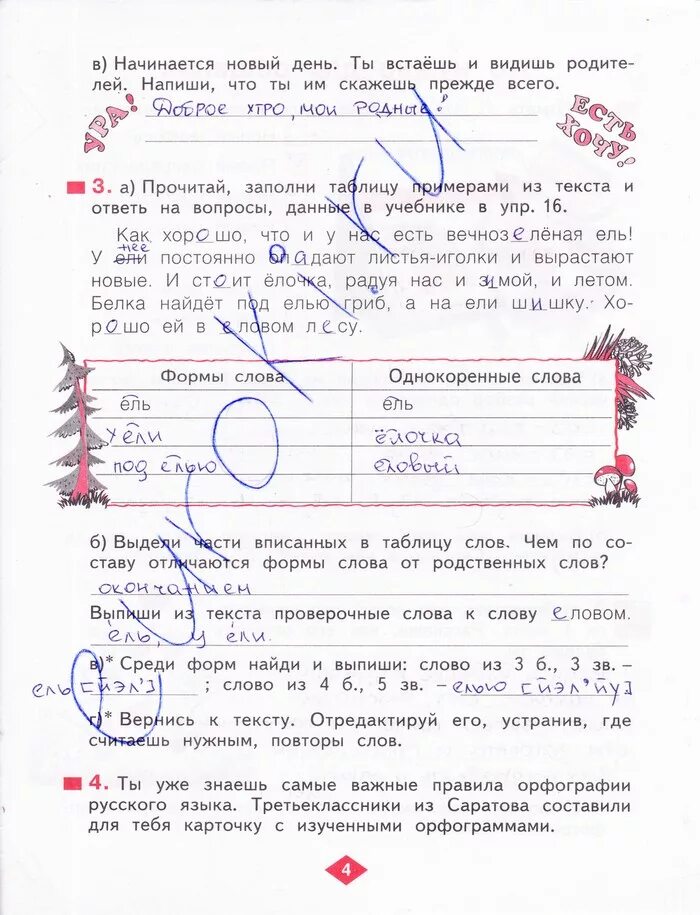 в) Начинается новый день. Ты встаёшь и видишь родите-
лей. Напиши, что ты им скажешь прежде всего.
УРА!
Доброе утро, мои родные!
ЕСТЬ ХОЧУ!
3. а) Прочитай, заполни таблицу примерами из текста и
ответь на вопросы, данные в учебнике в упр. 16.
Как хорошо, что и у нас есть вечнозелёная ель!
нее
У ели постоянно опадают листья-иголки и вырастают
новые. И стоит ёлочка, радуя нас и зимой, и летом.
Белка найдёт под елью гриб, а на ели шишку. Хо-
рошо ей в еловом лесу.
Формы слова Однокоренные слова
ель ель
у ели ёлочка
под елью еловый
б) Выдели части вписанных в таблицу слов. Чем по со-
ставу отличаются формы слова от родственных слов?
окончанием
Выпиши из текста проверочные слова к слову еловом.
ель, у ели.
в)* Среди форм найди и выпиши: слово из 3 б., 3 зв. –
ель [йэл'] ; слово из 4 б., 5 зв. – елью [йэл'йу]
г)* Вернись к тексту. Отредактируй его, устранив, где
считаешь нужным, повторы слов.
4. Ты уже знаешь самые важные правила орфографии
русского языка. Третьеклассники из Саратова составили
для тебя карточку с изученными орфограммами.
4
uroki.ru